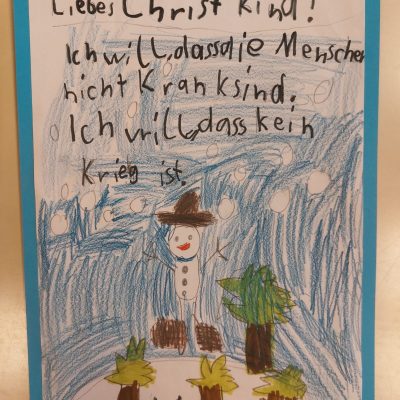 Liebes Christ kind!
Ich will, dass die Menschen
nicht Krank sind.
Ich will, dass kein
Krieg ist.